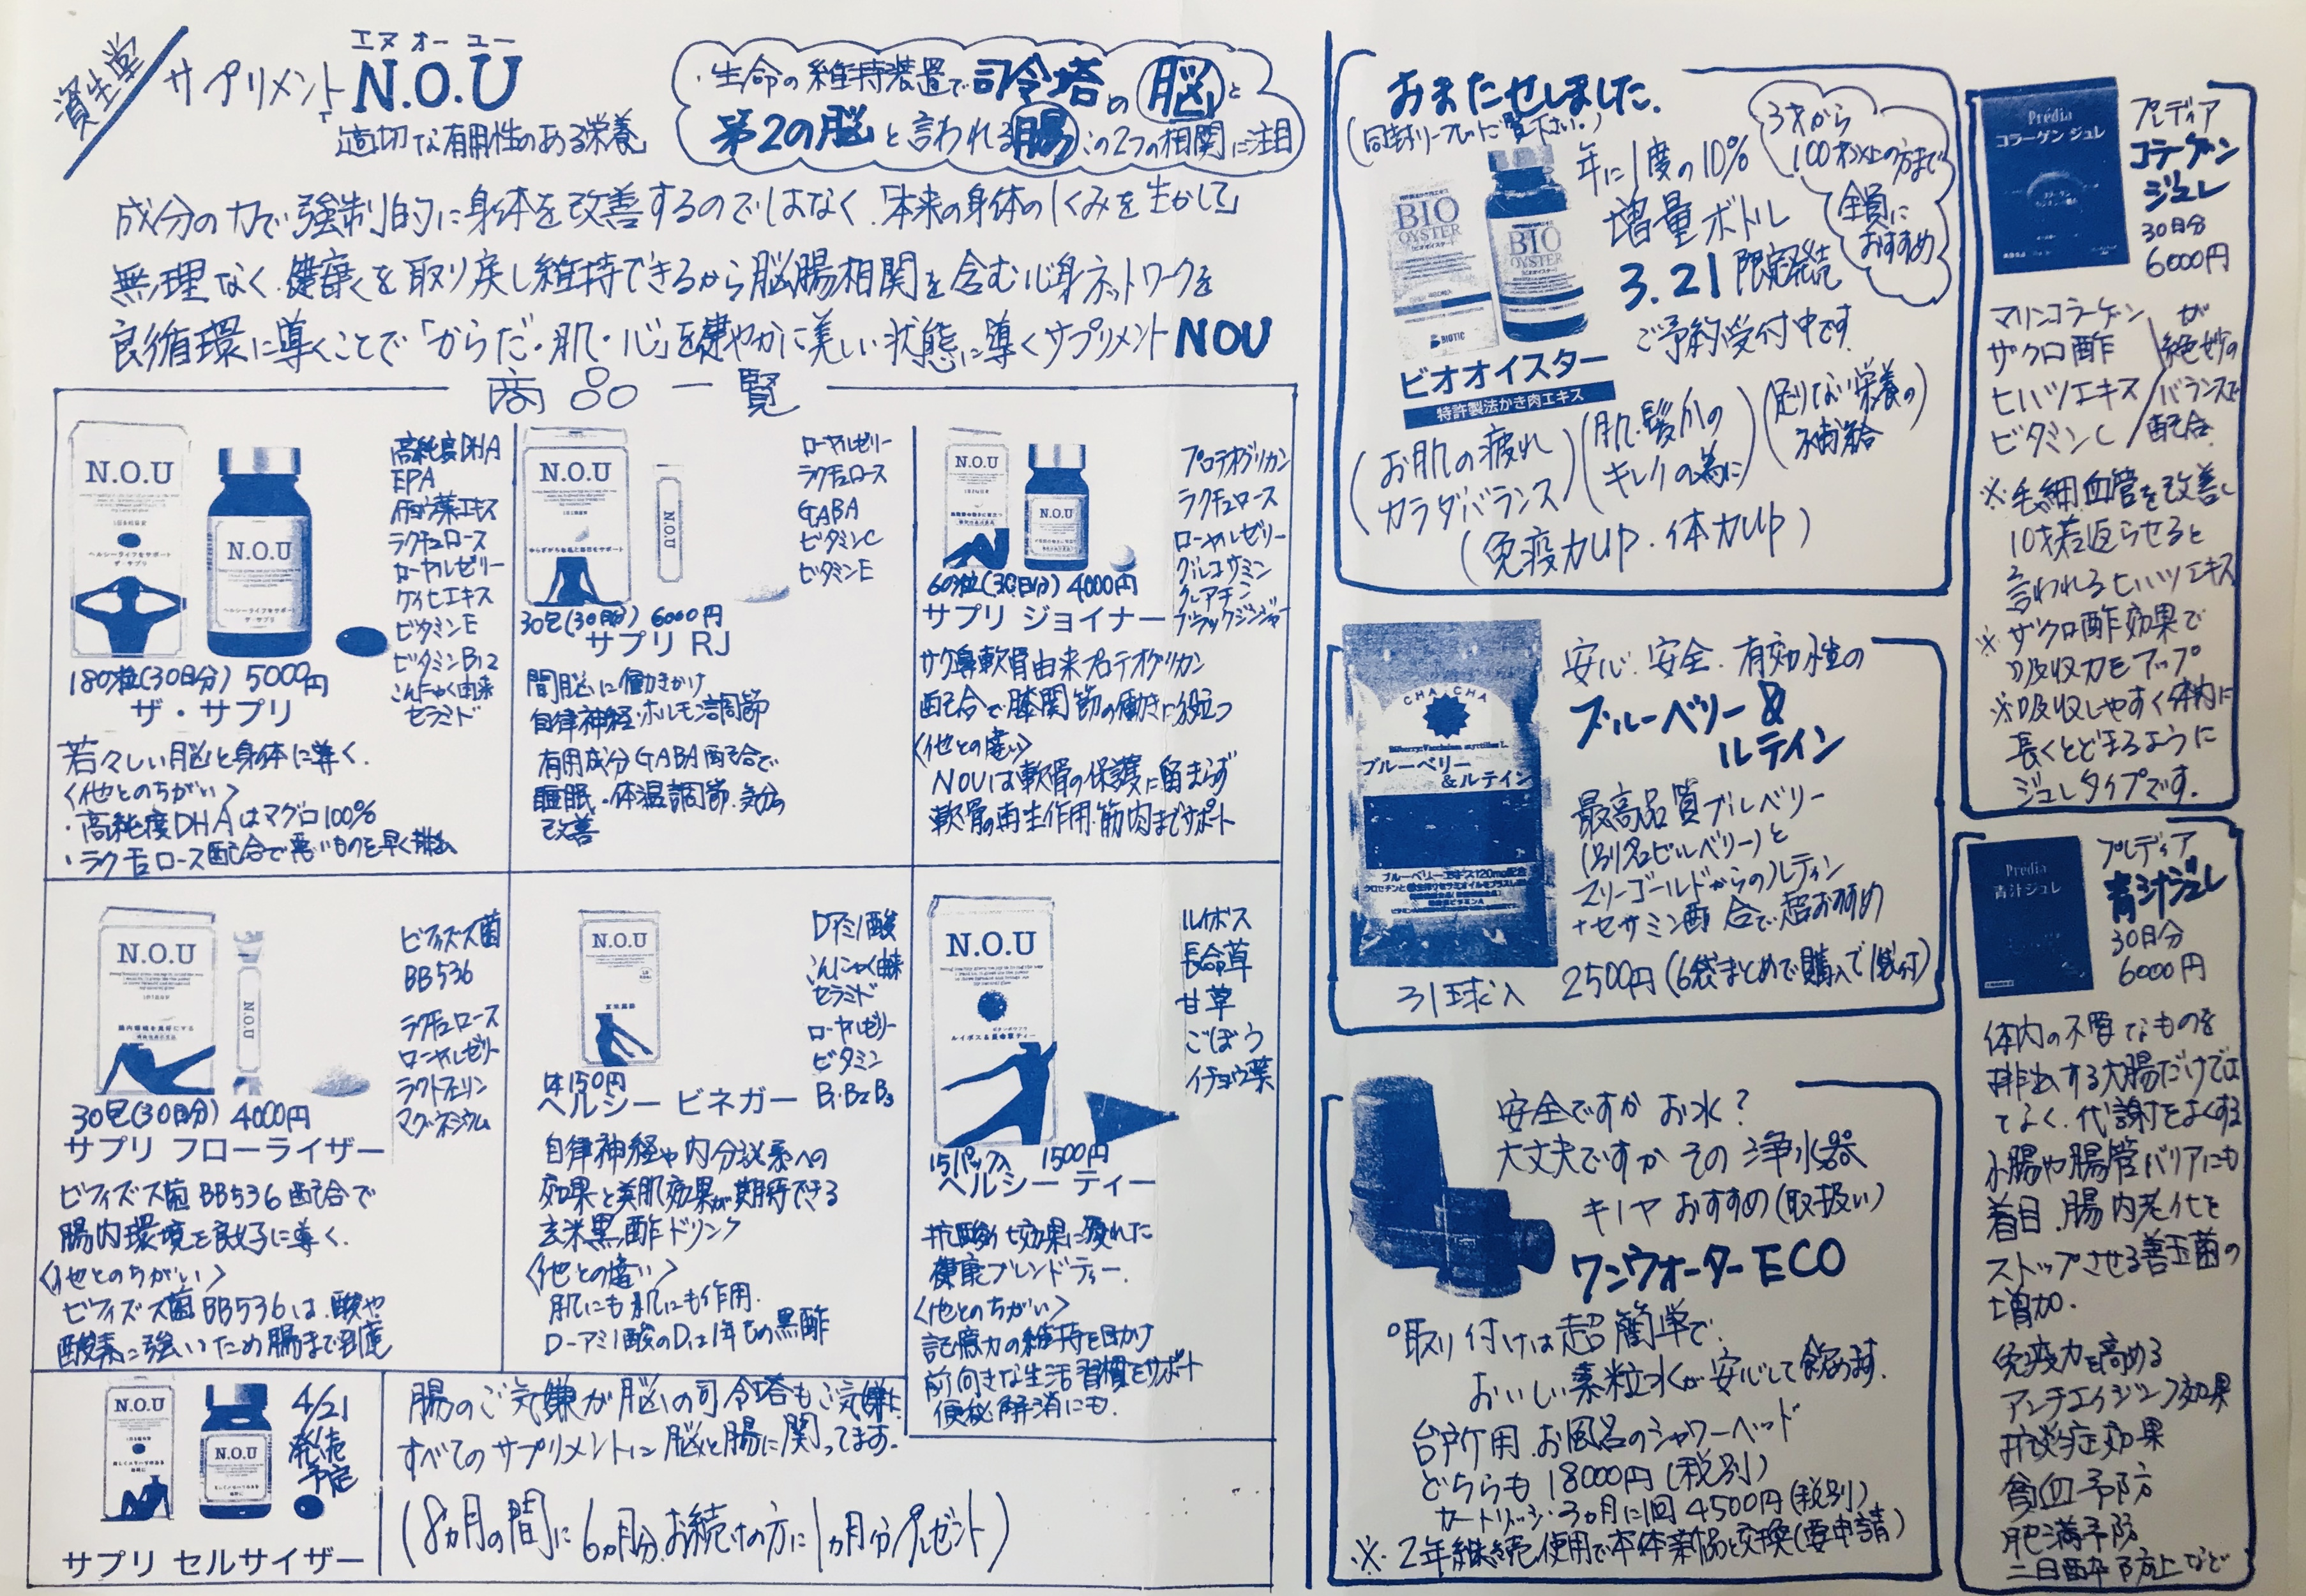 資生堂
サプリメント
エヌ オー ユー
N.O.U
適切な有用性のある栄養
・生命の維持装置で司令塔の「脳」と
第2の脳と言われる腸 この2つの相関に注目
成分の力で強制的に身体を改善するのではなく、「本来の身体のしくみを生かして」
無理なく、健康を取り戻し維持できるから脳腸相関を含む心身ネットワークを
良循環に導くことで「からだ・肌・心」を健やかに美しい状態に導くサプリメント NOU
商品一覧
N.O.U
ヘルシーライフをサポート
ザ・サプリ
N.O.U
ヘルシーライフをサポート
ザ・サプリ
高純度DHA
EPA
イチョウ葉エキス
ラクチュロース
ローヤルゼリー
ケイヒエキス
ビタミンE
ビタミンB12
こんにゃく由来
セラミド
180粒(30日分) 5000円
ザ・サプリ
若々しい脳と身体に導く.
〈他とのちがい〉
・高純度DHAはマグロ100%
・ラクチュロース配合で悪いものを早く排出
N.O.U
N.O.U
ローヤルゼリー
ラクチュロース
GABA
ビタミンC
ビタミンE
30包(30日分) 6000円
サプリ RJ
間脳に働きかけ
自律神経・ホルモン調節
有用成分GABA配合で
睡眠・体温調節・気分の
改善
N.O.U
N.O.U
プロテオグリカン
ラクチュロース
ローヤルゼリー
グルコサミン
クレアチン
ブラックジンジャー
60粒(30日分) 4000円
サプリ ジョイナー
サケ鼻軟骨由来プロテオグリカン
配合で膝関節の働きに役立つ
〈他との違い〉
NOUは軟骨の保護に留まらず
軟骨の再生作用・筋肉までサポート
N.O.U
腸内環境を良好にする
N.O.U
ビフィズス菌
BB536
ラクチュロース
ローヤルゼリー
ラクトフェリン
マグネシウム
30包(30日分) 4000円
サプリ フローライザー
ビフィズス菌BB536配合で
腸内環境を良好に導く.
〈他とのちがい〉
ビフィズス菌BB536は、酸や
酸素に強いため腸まで到達
N.O.U
玄米黒酢
Dアミノ酸
こんにゃく由来
セラミド
ローヤルゼリー
ビタミン
B1・B2 B3
1本150円
ヘルシー ビネガー
自律神経や内分泌系への
効果と美肌効果が期待できる
玄米黒酢ドリンク
〈他との違い〉
肌にも肌にも作用.
D-アミノ酸のDは1年もの黒酢
N.O.U
ルイボス&長命草ティー
ルイボス
長命草
甘草
ごぼう
イチョウ葉
15パック入 1500円
ヘルシー ティー
抗酸化効果に優れた
健康ブレンドティー.
〈他とのちがい〉
記憶力の維持を助け
前向きな生活習慣をサポート
便秘解消にも.
N.O.U
N.O.U
4/21
発売
予定
サプリ セルサイザー
腸のご気嫌が脳の司令塔もご気嫌に
すべてのサプリメントに脳と腸に関ってます.
(8ヵ月の間に6ヵ月分お続けの方に1ヵ月分プレゼント)
おまたせしました.
(同封リーフレットご覧下さい。)
年に1度の10%
増量ボトル
3.21 限定発売
ご予約受付中です
3才から
100才以上の方まで
全員に
おすすめ
BIO
OYSTER
ビオオイスター
BIOTIC
BIO
OYSTER
ビオオイスター
ビオオイスター
特許製法かき肉エキス
(お肌の疲れ
カラダバランス)
(肌・髪・爪の
キレイの為に)
(足りない栄養の
補給)
(免疫力UP・体力UP)
CHA CHA
ブルーベリー
&ルテイン
ブルーベリーエキス120mg配合
31球入
安心.安全.有効性の
ブルーベリー&
ルテイン
最高品質ブルベリー
(別名ビルベリー)と
マリーゴールドからのルテイン
+セサミン配合で超おすすめ
2500円(6袋まとめで購入で1袋付)
安全ですか お水?
大丈夫ですか その浄水器
キノヤ おすすめ(取扱い)
ワンウォーターECO
°取り付けは超簡単で.
おいしい素粒水が安心して飲めます.
台所用.お風呂のシャワーヘッド
どちらも18000円(税別)
カートリッジ・3ヵ月に1回4500円(税別)
※2年継続使用で本体新品と交換(要申請)
Prédia
コラーゲン ジュレ
プレディア
コラーゲン
ジュレ
30日分
6000円
マリンコラーゲン
ザクロ酢
ヒハツエキス
ビタミンC
が
絶妙の
バランスで
配合.
※毛細血管を改善し
10才若返らせると
言われるヒハツエキス
※ザクロ酢効果で
吸収力をアップ
※吸収しやすく体内に
長くとどまるように
ジュレタイプです.
Prédia
青汁ジュレ
プレディア
青汁ジュレ
30日分
6000円
体内の不要なものを
排出する大腸だけでは
てなく、代謝をよくする
小腸や腸管バリアにも
着目.腸内老化を
ストップさせる善玉菌の
増加.
免疫力を高める
アンチエイジング効果
抗炎症効果
貧血予防
肥満予防
二日酔予防止など